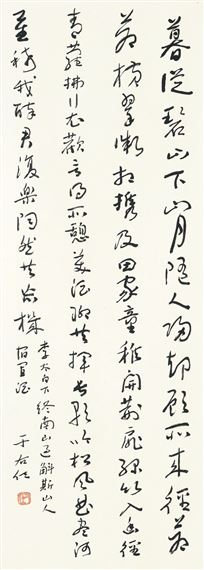 暮從碧山下山月隨人歸卻顧所來徑蒼
蒼橫翠微相攜及田家童稚開荊扉綠竹入幽徑
青蘿拂行衣歡言得所憩美酒聊共揮長歌吟松風曲盡河
星稀我醉君復樂陶然共忘機
李太白下終南山過斛斯山人
宿置酒
于右任